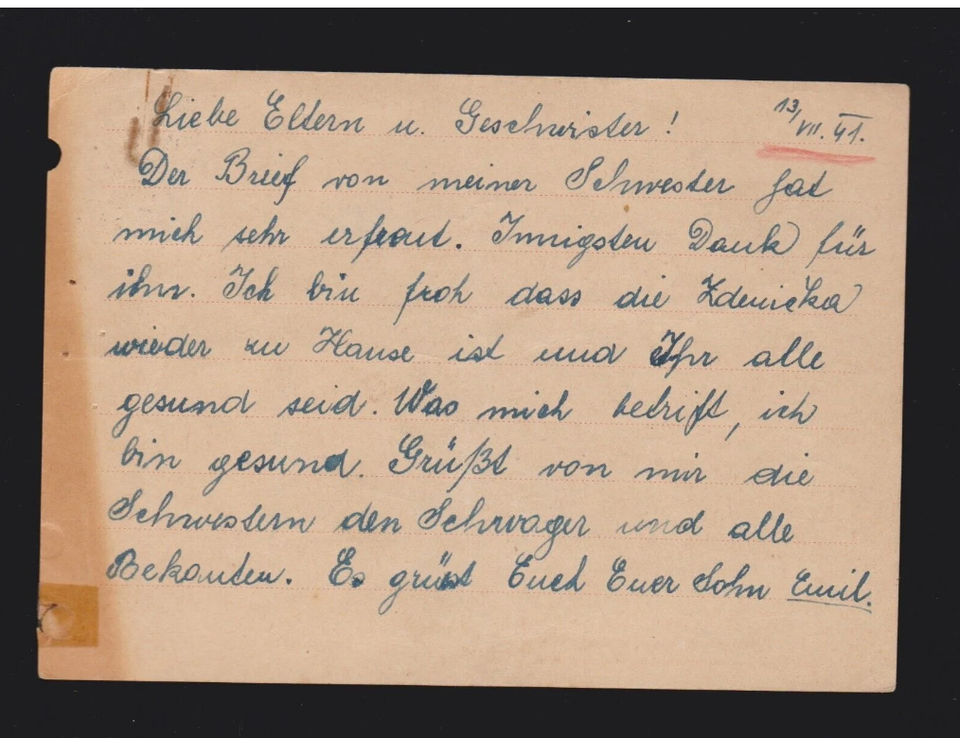 Liebe Eltern u. Geschwister! 13/VII. 41.
Der Brief von meiner Schwester hat
mich sehr erfraut. Innigsten Dank für
ihn. Ich bin froh dass die Zdenička
wieder zu Hause ist und Ihr alle
gesund seid. Was mich betrift, ich
bin gesund. Grüßt von mir die
Schwestern den Schwager und alle
Bekanten. Es grüst Euch Euer Sohn Emil.